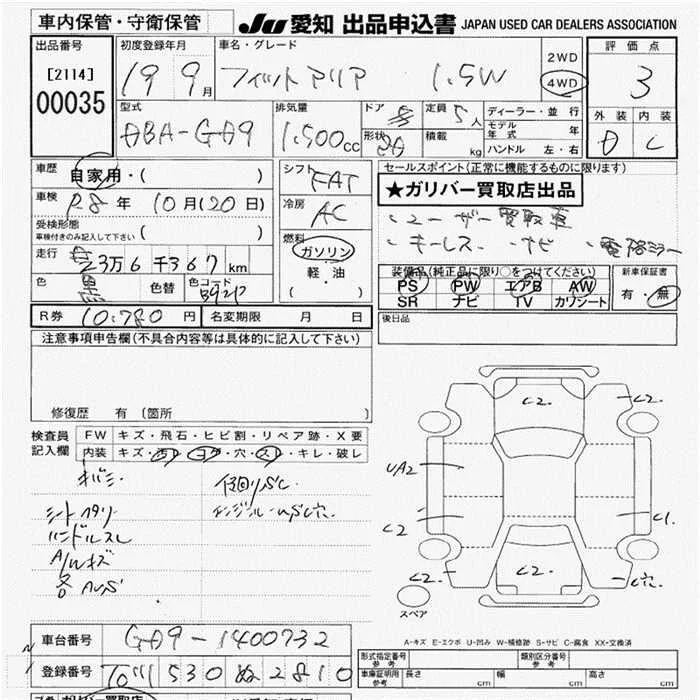 車内保管・守衛保管 JU 愛知 出品申込書 JAPAN USED CAR DEALERS ASSOCIATION
出品番号 初度登録年月 車名・グレード 2WD 評価点
[2114] 19 9月 フィットアリア 1.5W 4WD 3
00035 型式 排気量 ドア 定員 5人 ディーラー・並行 外装 内装
ABA-GA9 1,500cc 形状 積載 kg モデル年式 年 D C
ハンドル 左・右
車歴 自家用・( ) シフト FAT セールスポイント(正常に機能するものに限ります)
車検 R8年 10月(20日) 冷房 AC ★ガリバー買取店出品
受検形態 ・ユーザー買取車
車検付きのみ記入して下さい ( ) 燃料 ・キーレス ・ナビ ・電格ミラー
走行 23万6千367km ガソリン 装備品(純正品に限り○をつけてください) 新車保証書
軽油 PS PW エアB AW 有・無
色 黒 色替 色コード B92P ( ) SR ナビ TV カワシート
R券 10,780円 名変期限 月 日 後日品
注意事項申告欄(不具合内容等は具体的に記入して下さい)
修復歴 有 [箇所 ]
検査員 FW キズ・飛石・ヒビ割・リペア跡・X要
記入欄 内装 キズ・汚レ・コゲ・穴・スレ・キレ・破レ
シートヘタリ
ハンドルスレ
A/Wキズ
各AUS
C2 C2
UA2
C2 C1
C2 C2
スペア
A-キズ E-エクボ U-凹み W-補修跡 S-サビ C-腐食 XX-交換済
車台番号 GA9-1400732 型式指定番号 参考 類別区分番号 参考
登録番号 530 ぬ2810 車庫証明用 参考 長さ cm 幅 cm 高さ cm